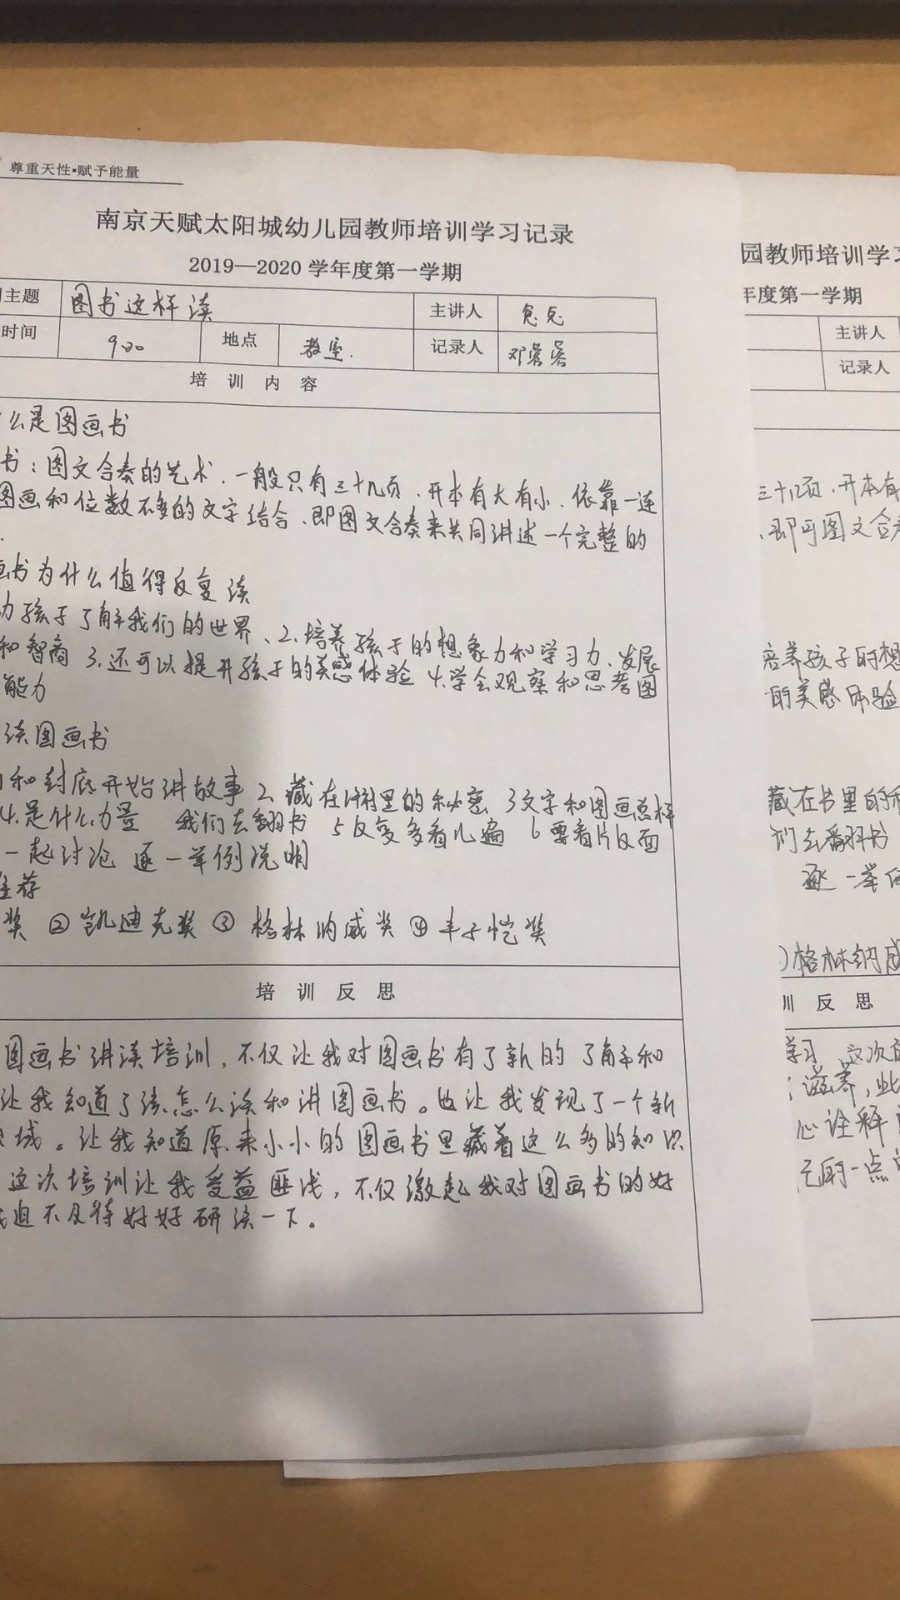 尊重天性•赋予能量
南京天赋太阳城幼儿园教师培训学习记录
2019—2020 学年度第一学期
主题 图书这样读 主讲人
时间 9:00 地点 教室. 记录人 邓
培 训 内 容
么是图画书
书：图文合奏的艺术.一般只有三十几页.开本有大有小.依靠一连
图画和位数不多的文字结合、即图文合奏来共同讲述一个完整的
书为什么值得反复读
孩子了解我们的世界、2.培养孩子的想象力和学习力、发展
和智商 3.还可以提升孩子的美感体验 4.学会观察和思考图
能力
读图画书
和封底开始讲故事 2、藏在 里的秘密 3文字和图画怎样
4.是什么力量 我们去翻书 5反复多看几遍 6要看片反面
一起讨论 逐一举例说明
推荐
奖 ②凯迪克奖 ③ 格林纳威奖 ④丰子恺奖
培 训 反 思
图画书讲读培训，不仅让我对图画书有了新的了解和
让我知道了该怎么读和讲图画书。也让我发现了一个新
域。让我知道原来小小的图画书里藏着这么多的知识
这次培训让我受益匪浅，不仅激起我对图画书的好
迫不及待好好研读一下。
园教师培训学
年度第一学期
主讲人
记录人
三十几页.开本有
、即可图文合
培养孩子的想
的美感体验
藏在书里的
们去翻书
逐一举
格林纳威
训 反 思
学习 这次
滋养，此
心诠释
的一点